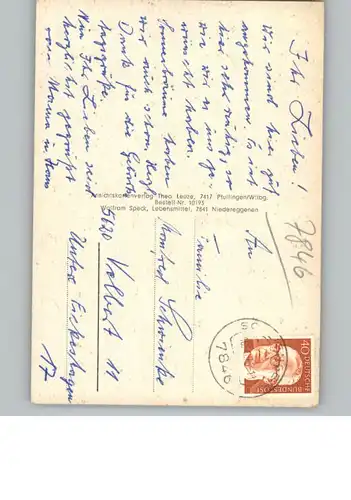 Ihr Lieben!
Wir sind hier gut
angekommen. Es ist
hier sehr ruhig, so
wie wir es uns ge-
wünscht haben.
Sonnenbräune haben
wir auch schon. Herzl.
Dank für die Geburts-
tagsgrüße.
Nun Ihr Lieben seid
herzlichst gegrüßt
von Mama u. Hans
Ansichtskartenverlag Theo Leuze, 7417 Pfullingen/Württbg.
Bestell-Nr. 10195
Wolfram Speck, Lebensmittel, 7841 Niedereggenen
7846
An
Familie
Manfred Schwinke
5620 Velbert 11
Untere Eickeshagen
17
7846
40
DEUTSCHE
BUNDESPOST